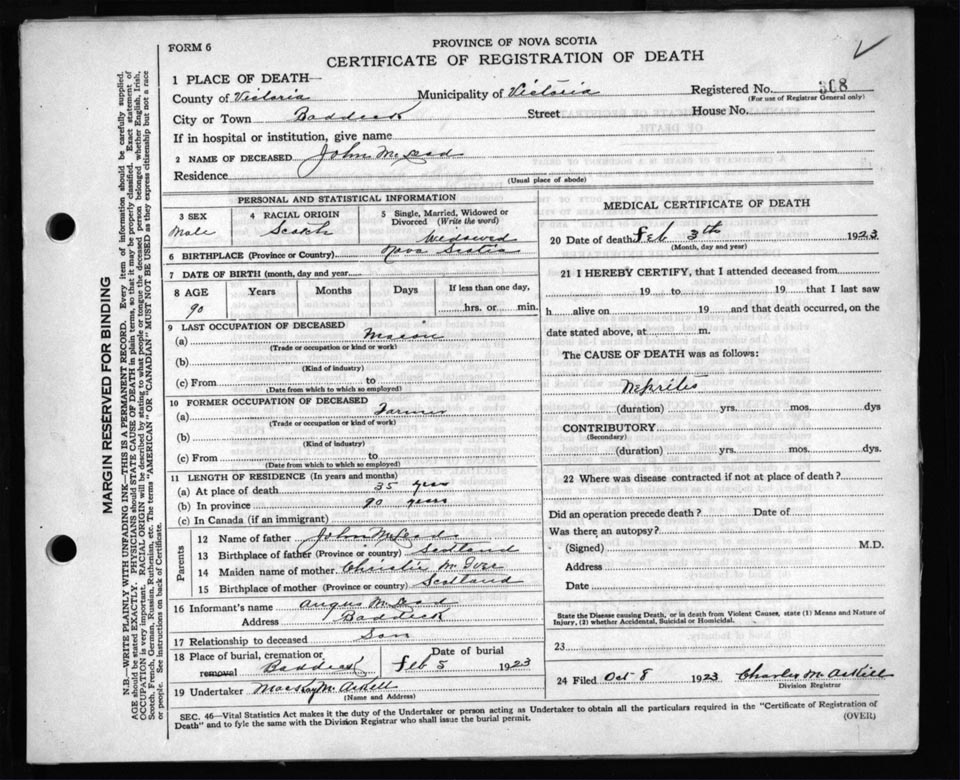 FORM 6
PROVINCE OF NOVA SCOTIA
CERTIFICATE OF REGISTRATION OF DEATH
1 PLACE OF DEATH—
County of Victoria Municipality of Victoria Registered No. 308
(For use of Registrar General only)
City or Town Baddeck Street House No.
If in hospital or institution, give name
2 NAME OF DECEASED John McLeod
Residence
(Usual place of abode)
PERSONAL AND STATISTICAL INFORMATION
3 SEX
Male
4 RACIAL ORIGIN
Scotch
5 Single, Married, Widowed or Divorced (Write the word)
Widowed
6 BIRTHPLACE (Province or Country) Nova Scotia
7 DATE OF BIRTH (month, day and year)
8 AGE Years Months Days If less than one day,
90 hrs. or min.
9 LAST OCCUPATION OF DECEASED
(a)
(Trade or occupation or kind or work)
(b)
(Kind of industry)
(c) From to
(Date from which to which so employed)
10 FORMER OCCUPATION OF DECEASED
(a) Farmer
(Trade or occupation or kind of work)
(b)
(Kind of industry)
(c) From to
(Date from which to which so employed)
11 LENGTH OF RESIDENCE (In years and months)
(a) At place of death 35 years
(b) In province 90 years
(c) In Canada (if an immigrant)
Parents
12 Name of father John McLeod
13 Birthplace of father (Province or country) Scotland
14 Maiden name of mother Christie McIver
15 Birthplace of mother (Province or country) Scotland
16 Informant's name Angus McLeod
Address Baddeck
17 Relationship to deceased Son
18 Place of burial, cremation or removal Date of burial
Baddeck Feb 5 1923
19 Undertaker McAskill
(Name and Address)
MEDICAL CERTIFICATE OF DEATH
20 Date of death Feb 3th 1923
(Month, day and year)
21 I HEREBY CERTIFY, that I attended deceased from
19 to 19 that I last saw
h alive on 19 and that death occurred, on the
date stated above, at m.
The CAUSE OF DEATH was as follows:
Nefrites
(duration) yrs. mos. dys
CONTRIBUTORY
(Secondary)
(duration) yrs. mos. dys.
22 Where was disease contracted if not at place of death?
Did an operation precede death? Date of
Was there an autopsy?
(Signed) M.D.
Address
Date
State the Disease causing Death, or in death from Violent Causes, state (1) Means and Nature of
Injury, (2) whether Accidental, Suicidal or Homicidal.
23
24 Filed Oct 8 1923 Charles McAskill
Division Registrar
SEC. 46—Vital Statistics Act makes it the duty of the Undertaker or person acting as Undertaker to obtain all the particulars required in the "Certificate of Registration of
Death" and to fyle the same with the Division Registrar who shall issue the burial permit.
(OVER)
MARGIN RESERVED FOR BINDING
N.B.—WRITE PLAINLY WITH UNFADING INK—THIS IS A PERMANENT RECORD. Every item of information should be carefully supplied.
AGE should be stated EXACTLY. PHYSICIANS should STATE CAUSE OF DEATH in plain terms, so that it may be properly classified. Exact statement of
OCCUPATION is very important. RACIAL ORIGIN will be described by stating to what people or tongue the deceased person belonged whether English, Irish,
Scotch, French, German, Russian, Ruthenian, etc. The terms "AMERICAN" OR "CANADIAN" MUST NOT BE USED as they express citizenship but not a race
or people. See instructions on back of Certificate.